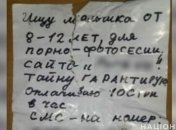 Ищу мальчика ОТ
8-12 лет, для
порно-фотосессии,
сайта " "
Тайну ГАРАНТИРУЮ
оплачиваю
в час
СМС-на номер-
НАЦІОН